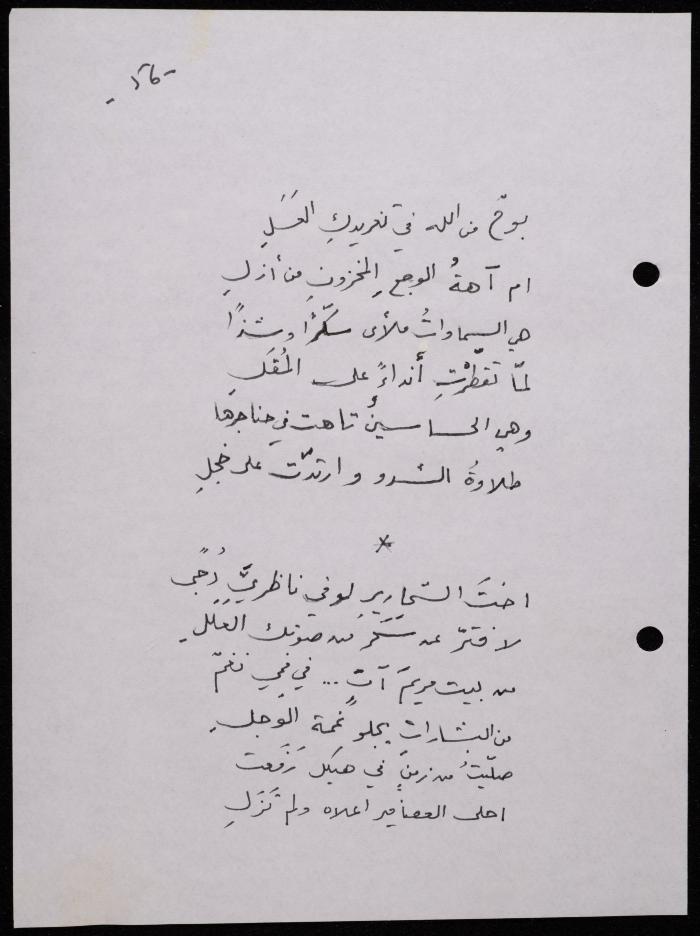 بوحٌ من الله في تغريدكِ العَسَلِ
ام آهةُ الوجعِ المخزونِ من أزلِ
هي السماواتُ ملأى سكّرًا وشذًا
لمّا تَقَطَّرْتِ أنداءً على المُقَلِ
وهي الحساسينُ تاهت في حناجرها
طلاوةُ الشدو وارتدّت على خجلِ
*
اختَ الشحاريرِ لو في ناظريَّ دُجًى
لافترّ عن سَحَرٍ من صوتك العَلَلِ
من بيت مريمَ آتٍ ... في فمي نغمٌ
من البشارات يجلو غمة الوجلِ
صلّيتُ من زمنٍ في هيكل زَقَفَت
احلى العصافير اعلاه ولم تَزَلِ